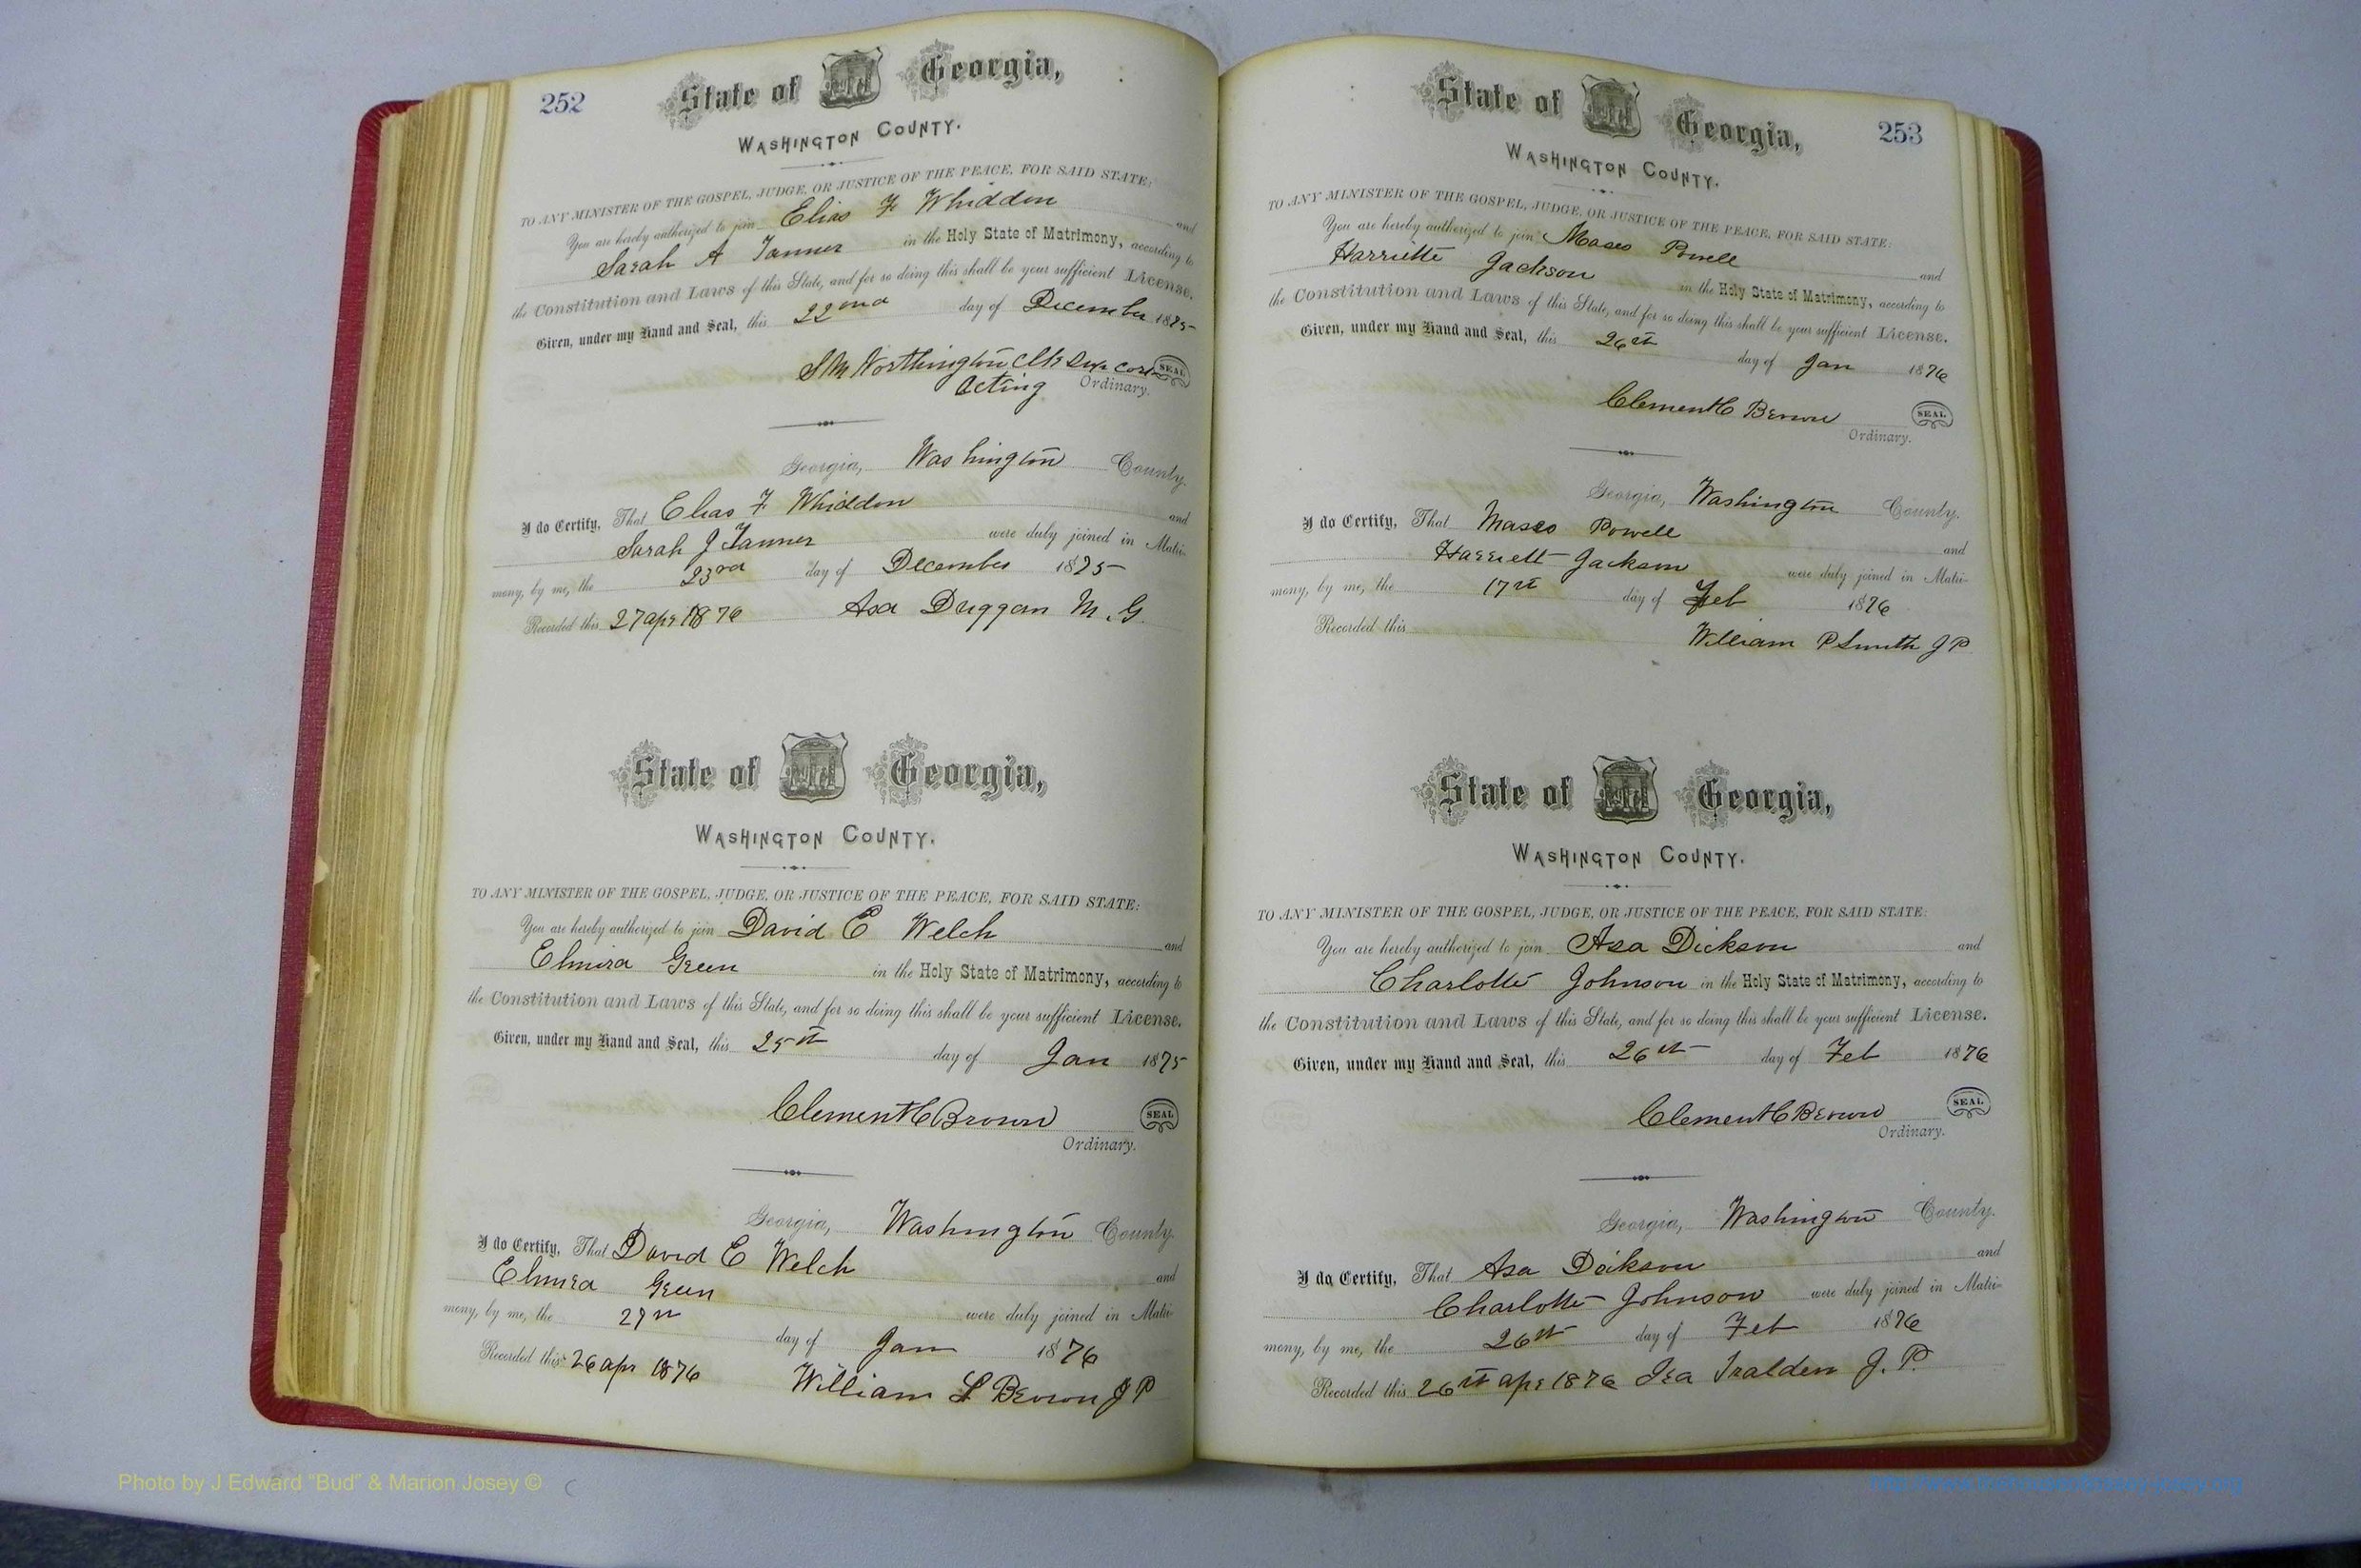 252
State of Georgia,
WASHINGTON COUNTY.
TO ANY MINISTER OF THE GOSPEL, JUDGE, OR JUSTICE OF THE PEACE, FOR SAID STATE:
You are hereby authorized to join Elias F Whiddon and
Sarah A Tanner in the Holy State of Matrimony, according to
the Constitution and Laws of this State, and for so doing this shall be your sufficient License.
Given, under my Hand and Seal, this 22nd day of December 1875
S M Northington Clk Sup Cort SEAL
Acting Ordinary.
Georgia, Washington County.
I do Certify, That Elias F Whiddon and
Sarah J Tanner were duly joined in Matri-
mony, by me, the 23rd day of December 1875
Recorded this 27 apr 1876 Asa Duggan M. G.
State of Georgia,
WASHINGTON COUNTY.
TO ANY MINISTER OF THE GOSPEL, JUDGE, OR JUSTICE OF THE PEACE, FOR SAID STATE:
You are hereby authorized to join David E Welch and
Elmira Green in the Holy State of Matrimony, according to
the Constitution and Laws of this State, and for so doing this shall be your sufficient License.
Given, under my Hand and Seal, this 25th day of Jan 1875
Clement C Brown SEAL
Ordinary.
Georgia, Washington County.
I do Certify, That David E Welch and
Elmira Green were duly joined in Matri-
mony, by me, the day of Jan 1876
Recorded this 26 apr 1876 William L Brown J P
253
State of Georgia,
WASHINGTON COUNTY.
TO ANY MINISTER OF THE GOSPEL, JUDGE, OR JUSTICE OF THE PEACE, FOR SAID STATE:
You are hereby authorized to join Powell and
Harriette Jackson in the Holy State of Matrimony, according to
the Constitution and Laws of this State, and for so doing this shall be your sufficient License.
Given, under my Hand and Seal, this 26th day of Jan 1876
Clement C Brown SEAL
Ordinary.
Georgia, Washington County.
I do Certify, That Powell and
Harriett Jackson were duly joined in Matri-
mony, by me, the 17th day of Feb 1876
Recorded this William P Smith J P
State of Georgia,
WASHINGTON COUNTY.
TO ANY MINISTER OF THE GOSPEL, JUDGE, OR JUSTICE OF THE PEACE, FOR SAID STATE:
You are hereby authorized to join Asa Dickson and
Charlotte Johnson in the Holy State of Matrimony, according to
the Constitution and Laws of this State, and for so doing this shall be your sufficient License.
Given, under my Hand and Seal, this 26th day of Feb 1876
Clement C Brown SEAL
Ordinary.
Georgia, Washington County.
I do Certify, That Asa Dickson and
Charlotte Johnson were duly joined in Matri-
mony, by me, the 26th day of Feb 1876
Recorded this 26th apr 1876 Ira J. P.
Photo by J Edward "Bud" & Marion Josey ©